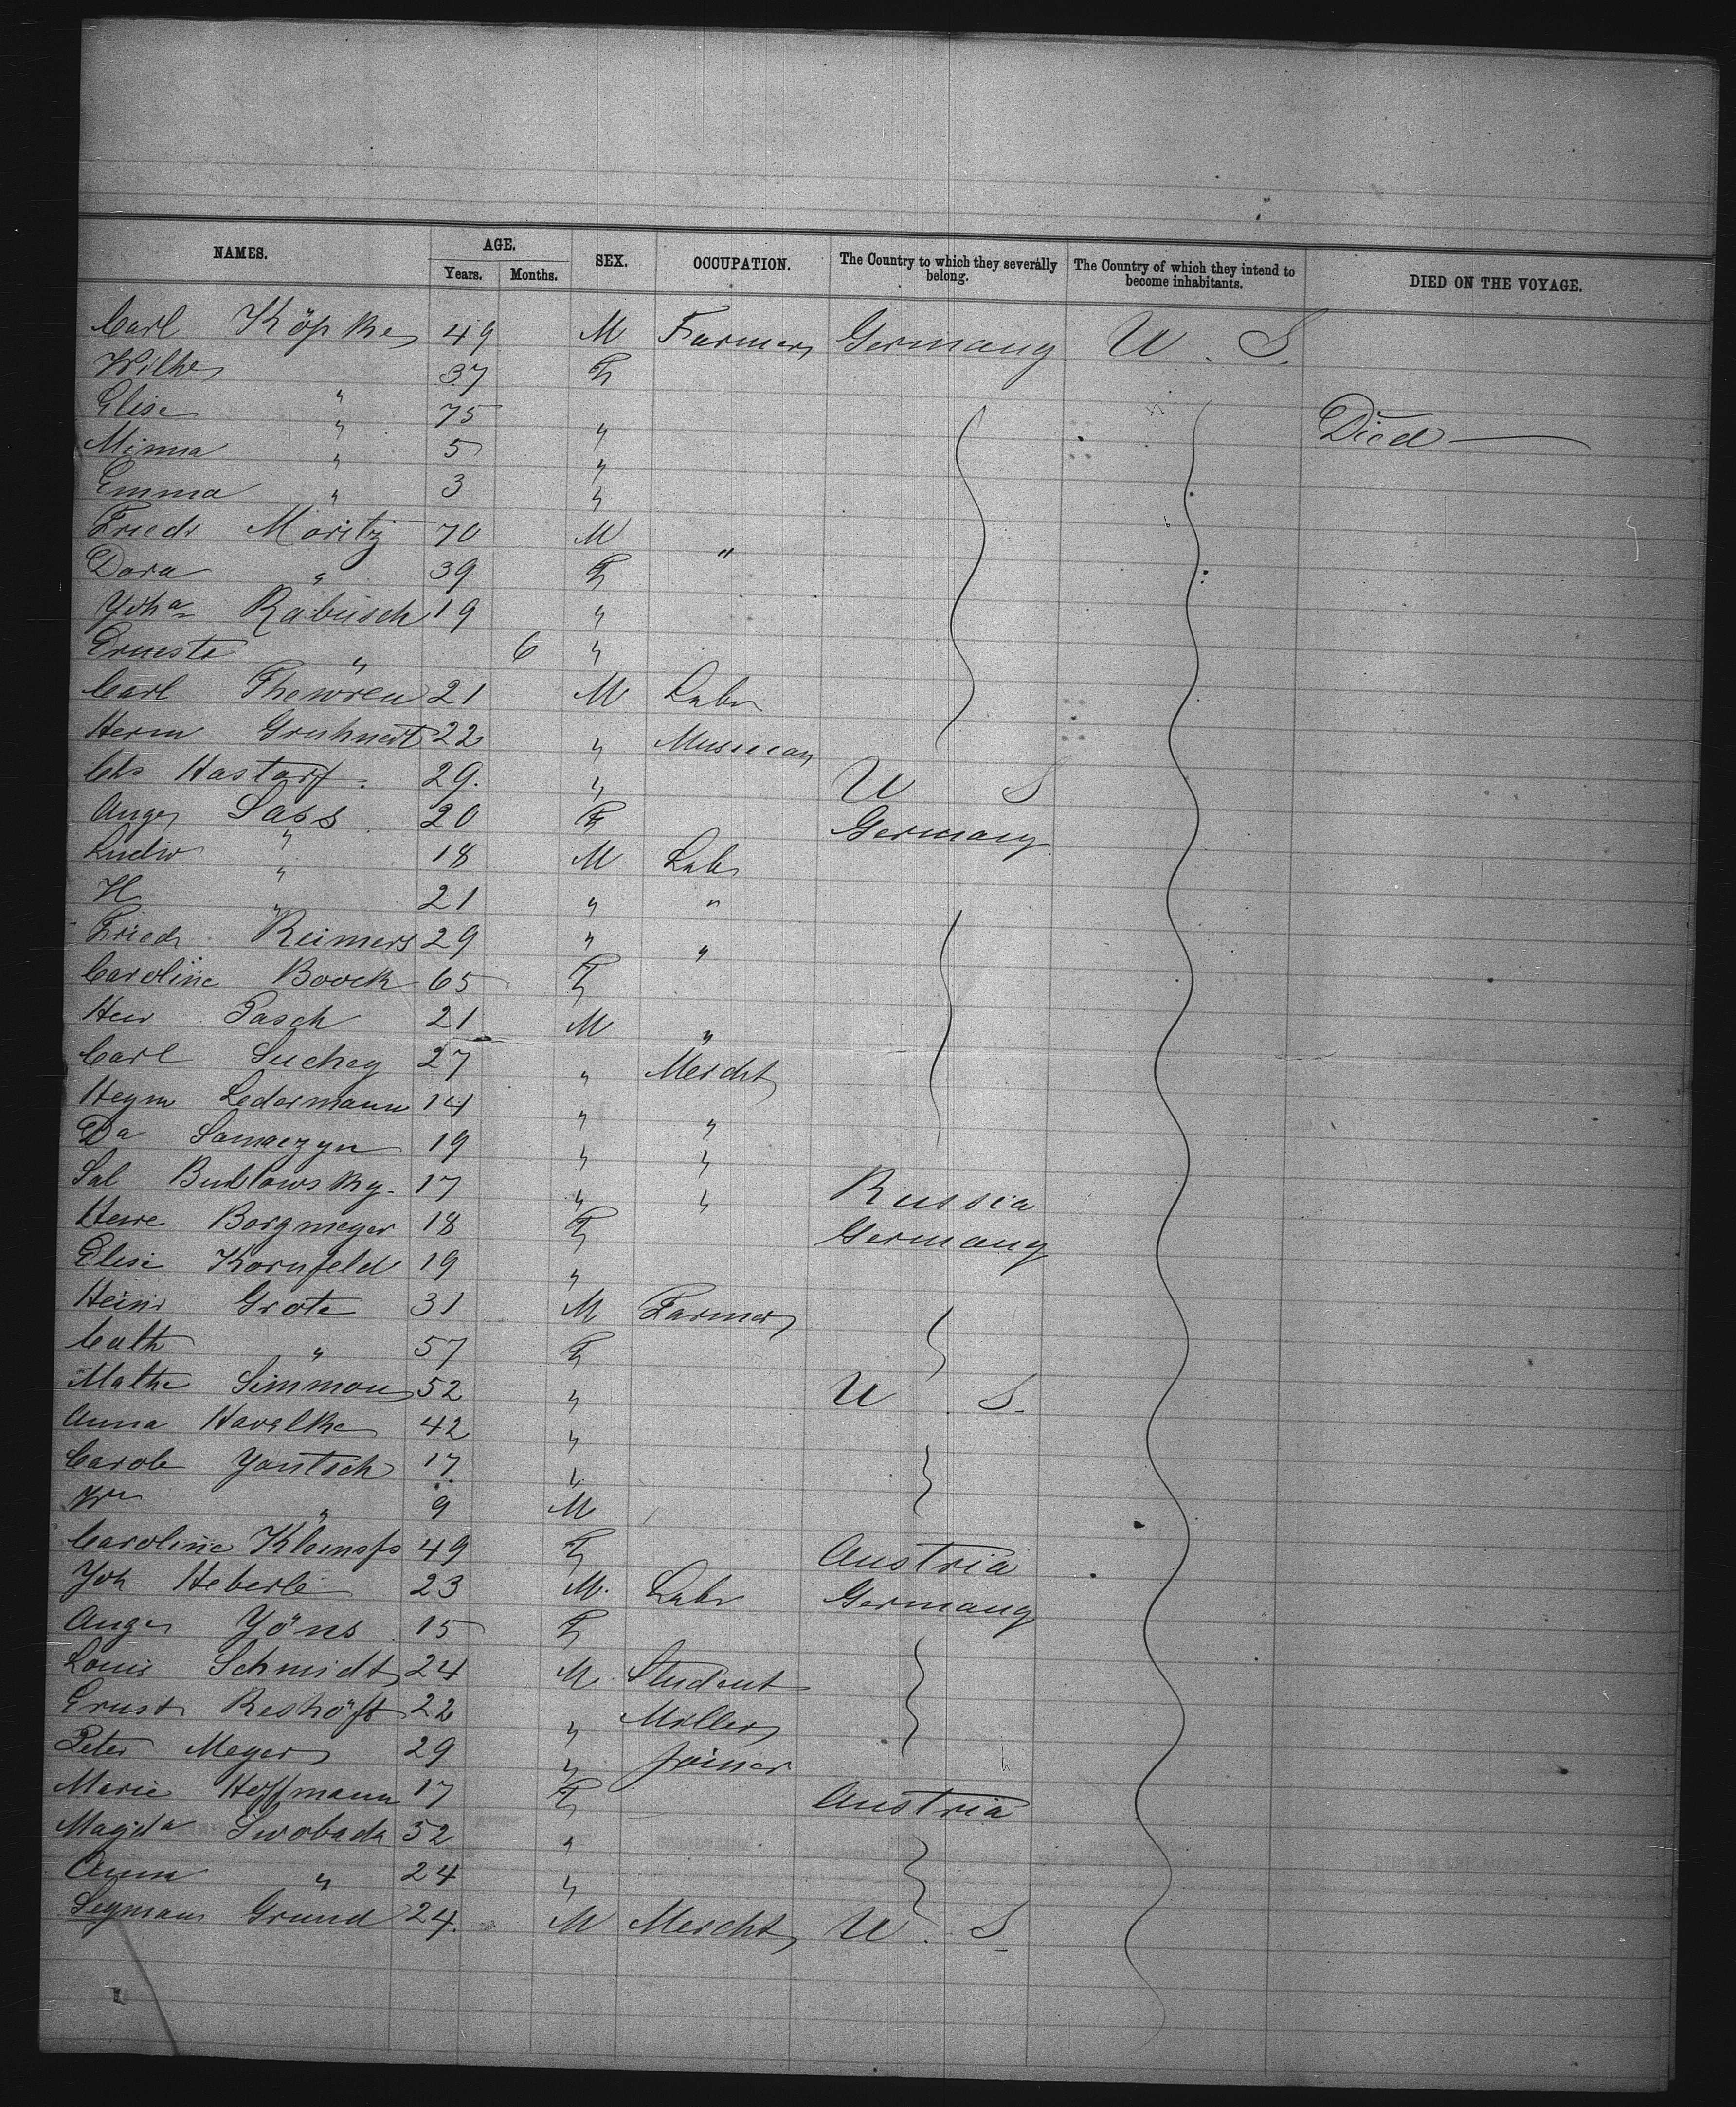 NAMES. AGE. SEX. OCCUPATION. The Country to which they severally belong. The Country of which they intend to become inhabitants. DIED ON THE VOYAGE.
Years. Months.
Carl Köpke 49 M Farmer Germany U. S.
Wilhe " 37 F
Elise " 75 " Died
Minna " 5 "
Emma " 3 "
Friedr Moritz 70 M "
Dora " 39 F
Joha Rabusch 19 "
Erneste " 6 "
Carl Thewren 21 M Labr
Herm Gruhnert 22 " Musician
Chs Hastorf. 29. " U S
Auge Sass 20 F Germany
Ludw " 18 M Labr
H " 21 " "
Friedr Reimers 29 " "
Caroline Boock 65 F
Hew Pasch 21 M "
Carl Suchey 27 " Mercht
Heym Ledermann 14 " "
Da Samaczyn 19 " "
Sal Budlowsky 17 " " Russia
Hewe Borgmeyer 18 F Germany
Elise Kornfeld 19 "
Heinr Grote 31 M Farmer
Cath " 57 F
Mathe Simmon 52 " U. S.
Anna Havelke 42 "
Carole Jantsch 17. "
Wm " 9 M
Caroline 49 F Austria
Joh Heberle 23 M. Labr Germany
Auge Jöns 15 F
Louis Schmidt 24 M Student
Ernst Reshöft 22 " Miller
Peter Meyer 29 " Joiner
Marie Hoffmann 17 F Austria
Magda Swoboda 52 "
Anna " 24 "
Seymann Grund 24. M Mercht U. S